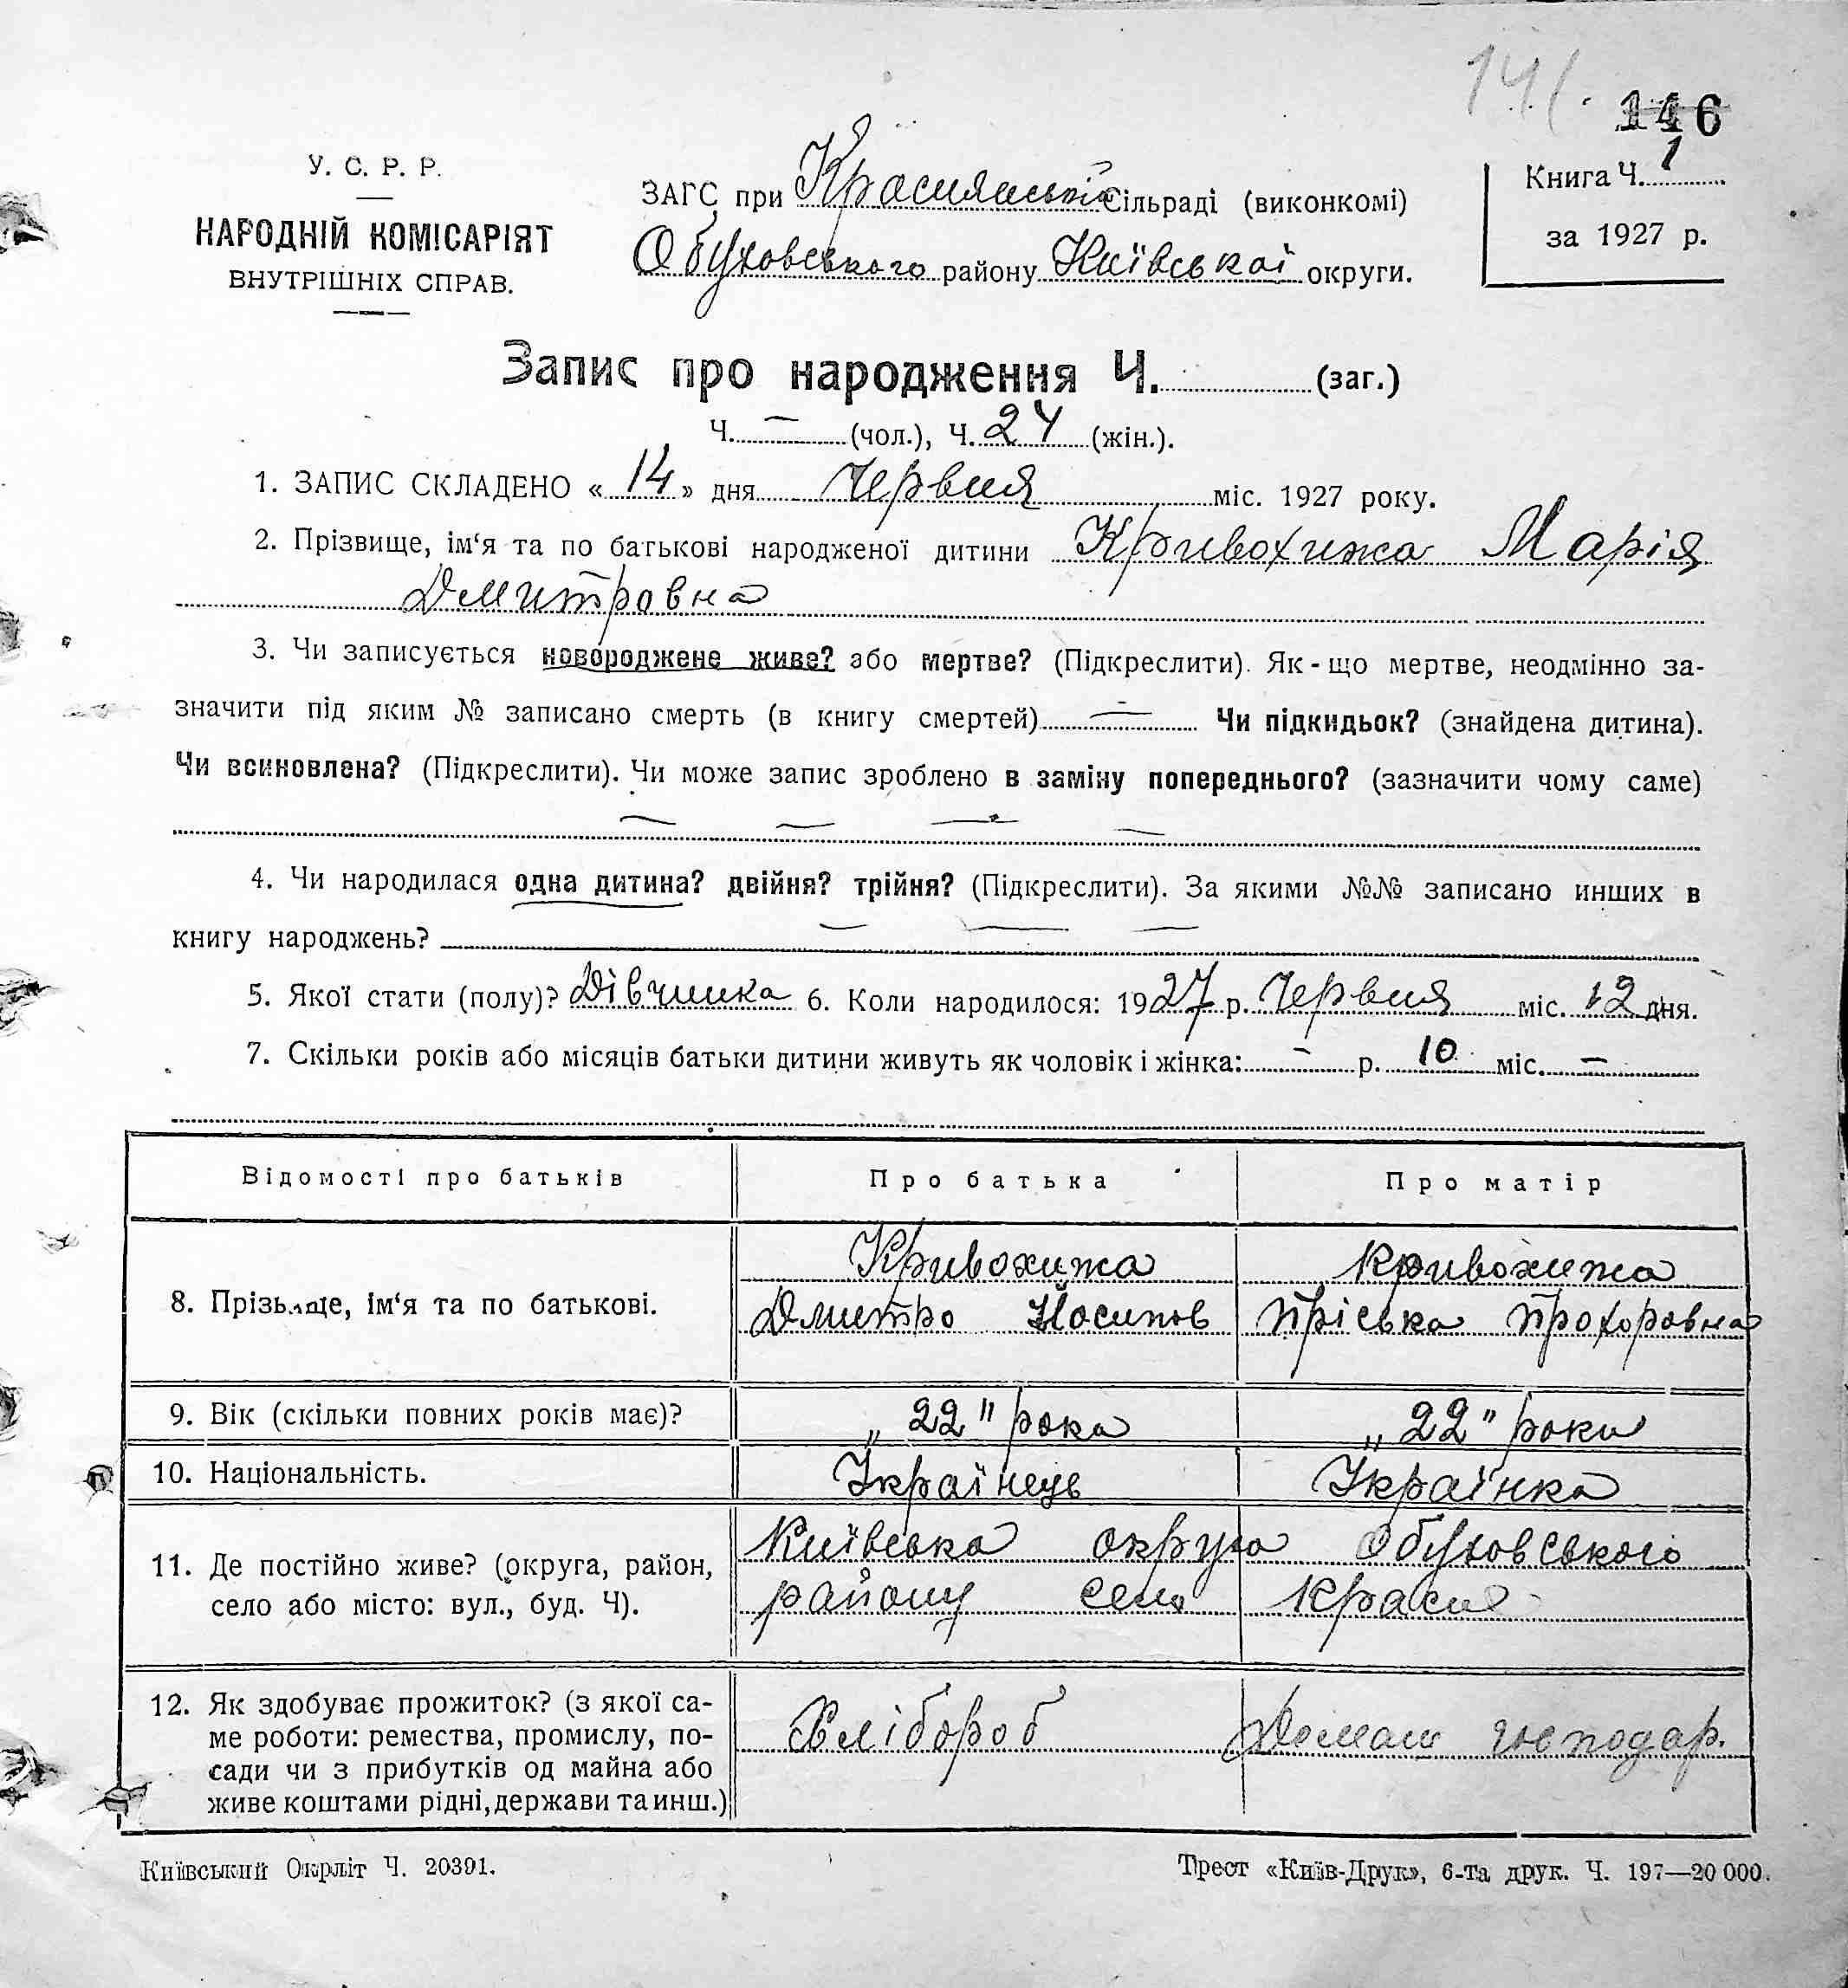 141.
146
У. С. Р. Р.
НАРОДНІЙ КОМІСАРІЯТ
ВНУТРІШНІХ СПРАВ.
ЗАГС при Краснянській Сільраді (виконкомі)
Обуховського району Київської округи.
Книга Ч. 1
за 1927 р.
Запис про народження Ч. (заг.)
Ч. — (чол.), Ч. 24 (жін.).
1. ЗАПИС СКЛАДЕНО « 14 » дня Червня міс. 1927 року.
2. Прізвище, ім‘я та по батькові народженої дитини Кривохижа Марія
Дмитровна
3. Чи записується новороджене живе? або мертве? (Підкреслити). Як-що мертве, неодмінно за-
значити під яким № записано смерть (в книгу смертей) — Чи підкидьок? (знайдена дитина).
Чи всиновлена? (Підкреслити). Чи може запис зроблено в заміну попереднього? (зазначити чому саме)
— — — —
4. Чи народилася одна дитина? двійня? трійня? (Підкреслити). За якими №№ записано инших в
книгу народжень? — — —
5. Якої стати (полу)? Дівчинка 6. Коли народилося: 1927 р. Червня міс. 12 дня.
7. Скільки років або місяців батьки дитини живуть як чоловік і жінка: — р. 10 міс. —
Відомості про батьків Про батька Про матір
8. Прізвище, ім‘я та по батькові.
Кривохижа
Дмитро Йосипов
Кривохижа
Пріська Прохоровна
9. Вік (скільки повних років має)? „22" рока „22" роки
10. Національність. Українець Українка
11. Де постійно живе? (округа, район,
село або місто: вул., буд. Ч).
Київська округа Обуховського
району село Красне
12. Як здобуває прожиток? (з якої са-
ме роботи: ремества, промислу, по-
сади чи з прибутків од майна або
живе коштами рідні, держави та инш.)
Хлібороб Домаш господар.
Київський Окрліт Ч. 20391.
Трест «Київ-Друк», 6-та друк. Ч. 197—20 000.